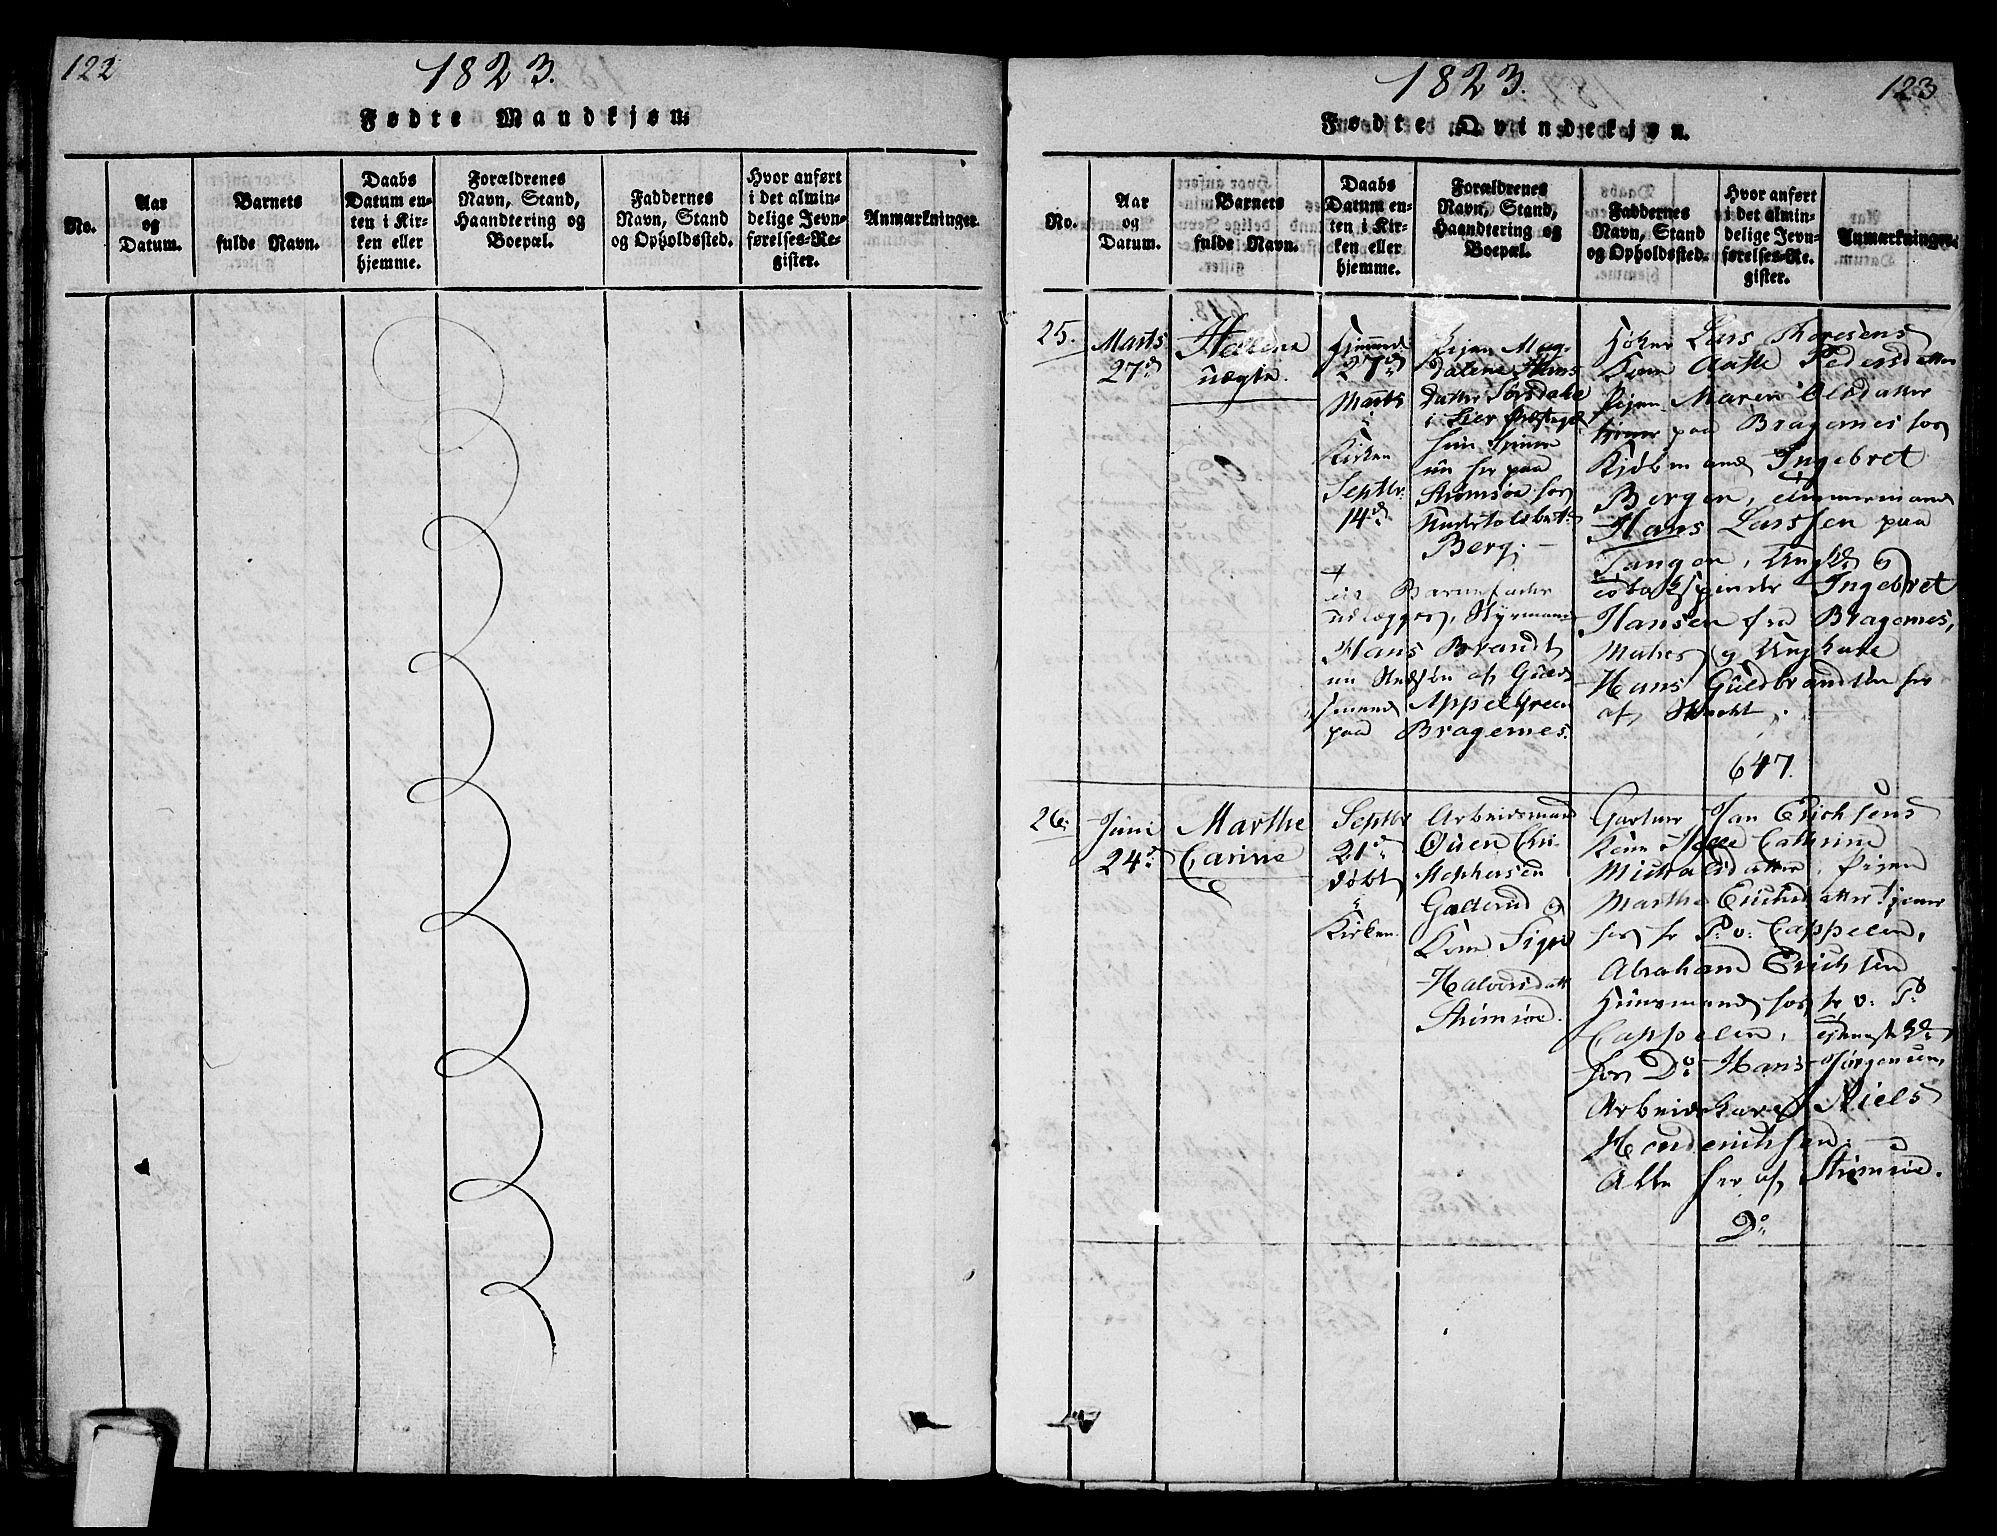 122
1823.
Fødte Mandkjøn:
No.
Aar
og
Datum.
Barnets
fulde Navn.
Daabs
Datum en-
ten i Kir-
ken eller
hjemme.
Forældrenes
Navn, Stand,
Haandtering og
Boepæl.
Faddernes
Navn, Stand
og Opholdssted.
Hvor anført
i det almin-
delige Jevn-
førelses-Re-
gister.
Anmærkninger.
1823.
123
Fødte Qvindekjøn.
No.
Aar
og
Datum.
Barnets
fulde Navn.
Daabs
Datum en-
ten i Kir-
ken eller
hjemme.
Forældrenes
Navn, Stand,
Haandtering og
Boepæl.
Faddernes
Navn, Stand
og Opholdssted.
Hvor anført
i det almin-
delige Jevn-
førelses-Re-
gister.
Anmærkninger.
25.
Marts
27d
Helene
uægte.
hjemmed
27d
Marts
i
Kirken
Septbr.
14d
Pigen Mag-
dalene Hans
datter
i Lier Præstegd
her paa
Strømsøe hos
Berg. —
Barnefader
udlægges, Styrmand
Hans Brandt
af Guld
smand Appelgreen
paa Bragernes.
Høker Lars Thoresens
Kone Aasse Pedersdatter
Pigen Maren Olsdatter
tjener paa Bragernes hos
Kjøbmand Ingebret
Bergen, Tømmermand
Hans Larssen paa
Tangen, Ungk. og
Tobakspinder Ingebret
Hansen fra Bragernes,
og Ungkarl
Hans Guldbrandsen her
af
647.
26.
Juni
24d
Marthe
Carine
Septbr
21d
døbt
i
Kirken
Arbeidsmand
Ouen Chri-
stophersen
og
Kone Signe
Halvorsdatt
Strømsøe.
Gartner Jan Erichsens
Kone Helle Cathrine
Michalsdatter, Pigen
Marthe Erichsdatter tjener
hos hr P. v. Cappelen,
Abraham Erichsen
Huusmand hos hr v. P.
Cappelen, Tjenestek.
hos Do Hans Jørgensen,
Arbeidskarl Niels
Alle her af Strømsøe.
Do